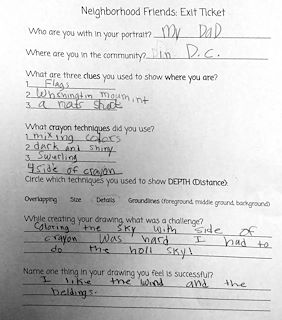 Neighborhood Friends: Exit Ticket
Who are you with in your portrait? My DaD
Where are you in the community? in D.C.
What are three clues you used to show where you are?
1 Flags
2 Whshingtin moumint
3 a nats shect
What crayon techniques did you use?
1 mixing colors
2 dark and shiny
3 Swurling
4 side of crayon
Circle which techniques you used to show DEPTH (Distance):
Overlapping Size Details Groundlines (foreground, middle ground, background)
While creating your drawing, what was a challenge?
Coloring the sky with side of
crayon was hard I had to
do the holl sky!
Name one thing in your drawing you feel is successful?
I like the wind and the
beldings.